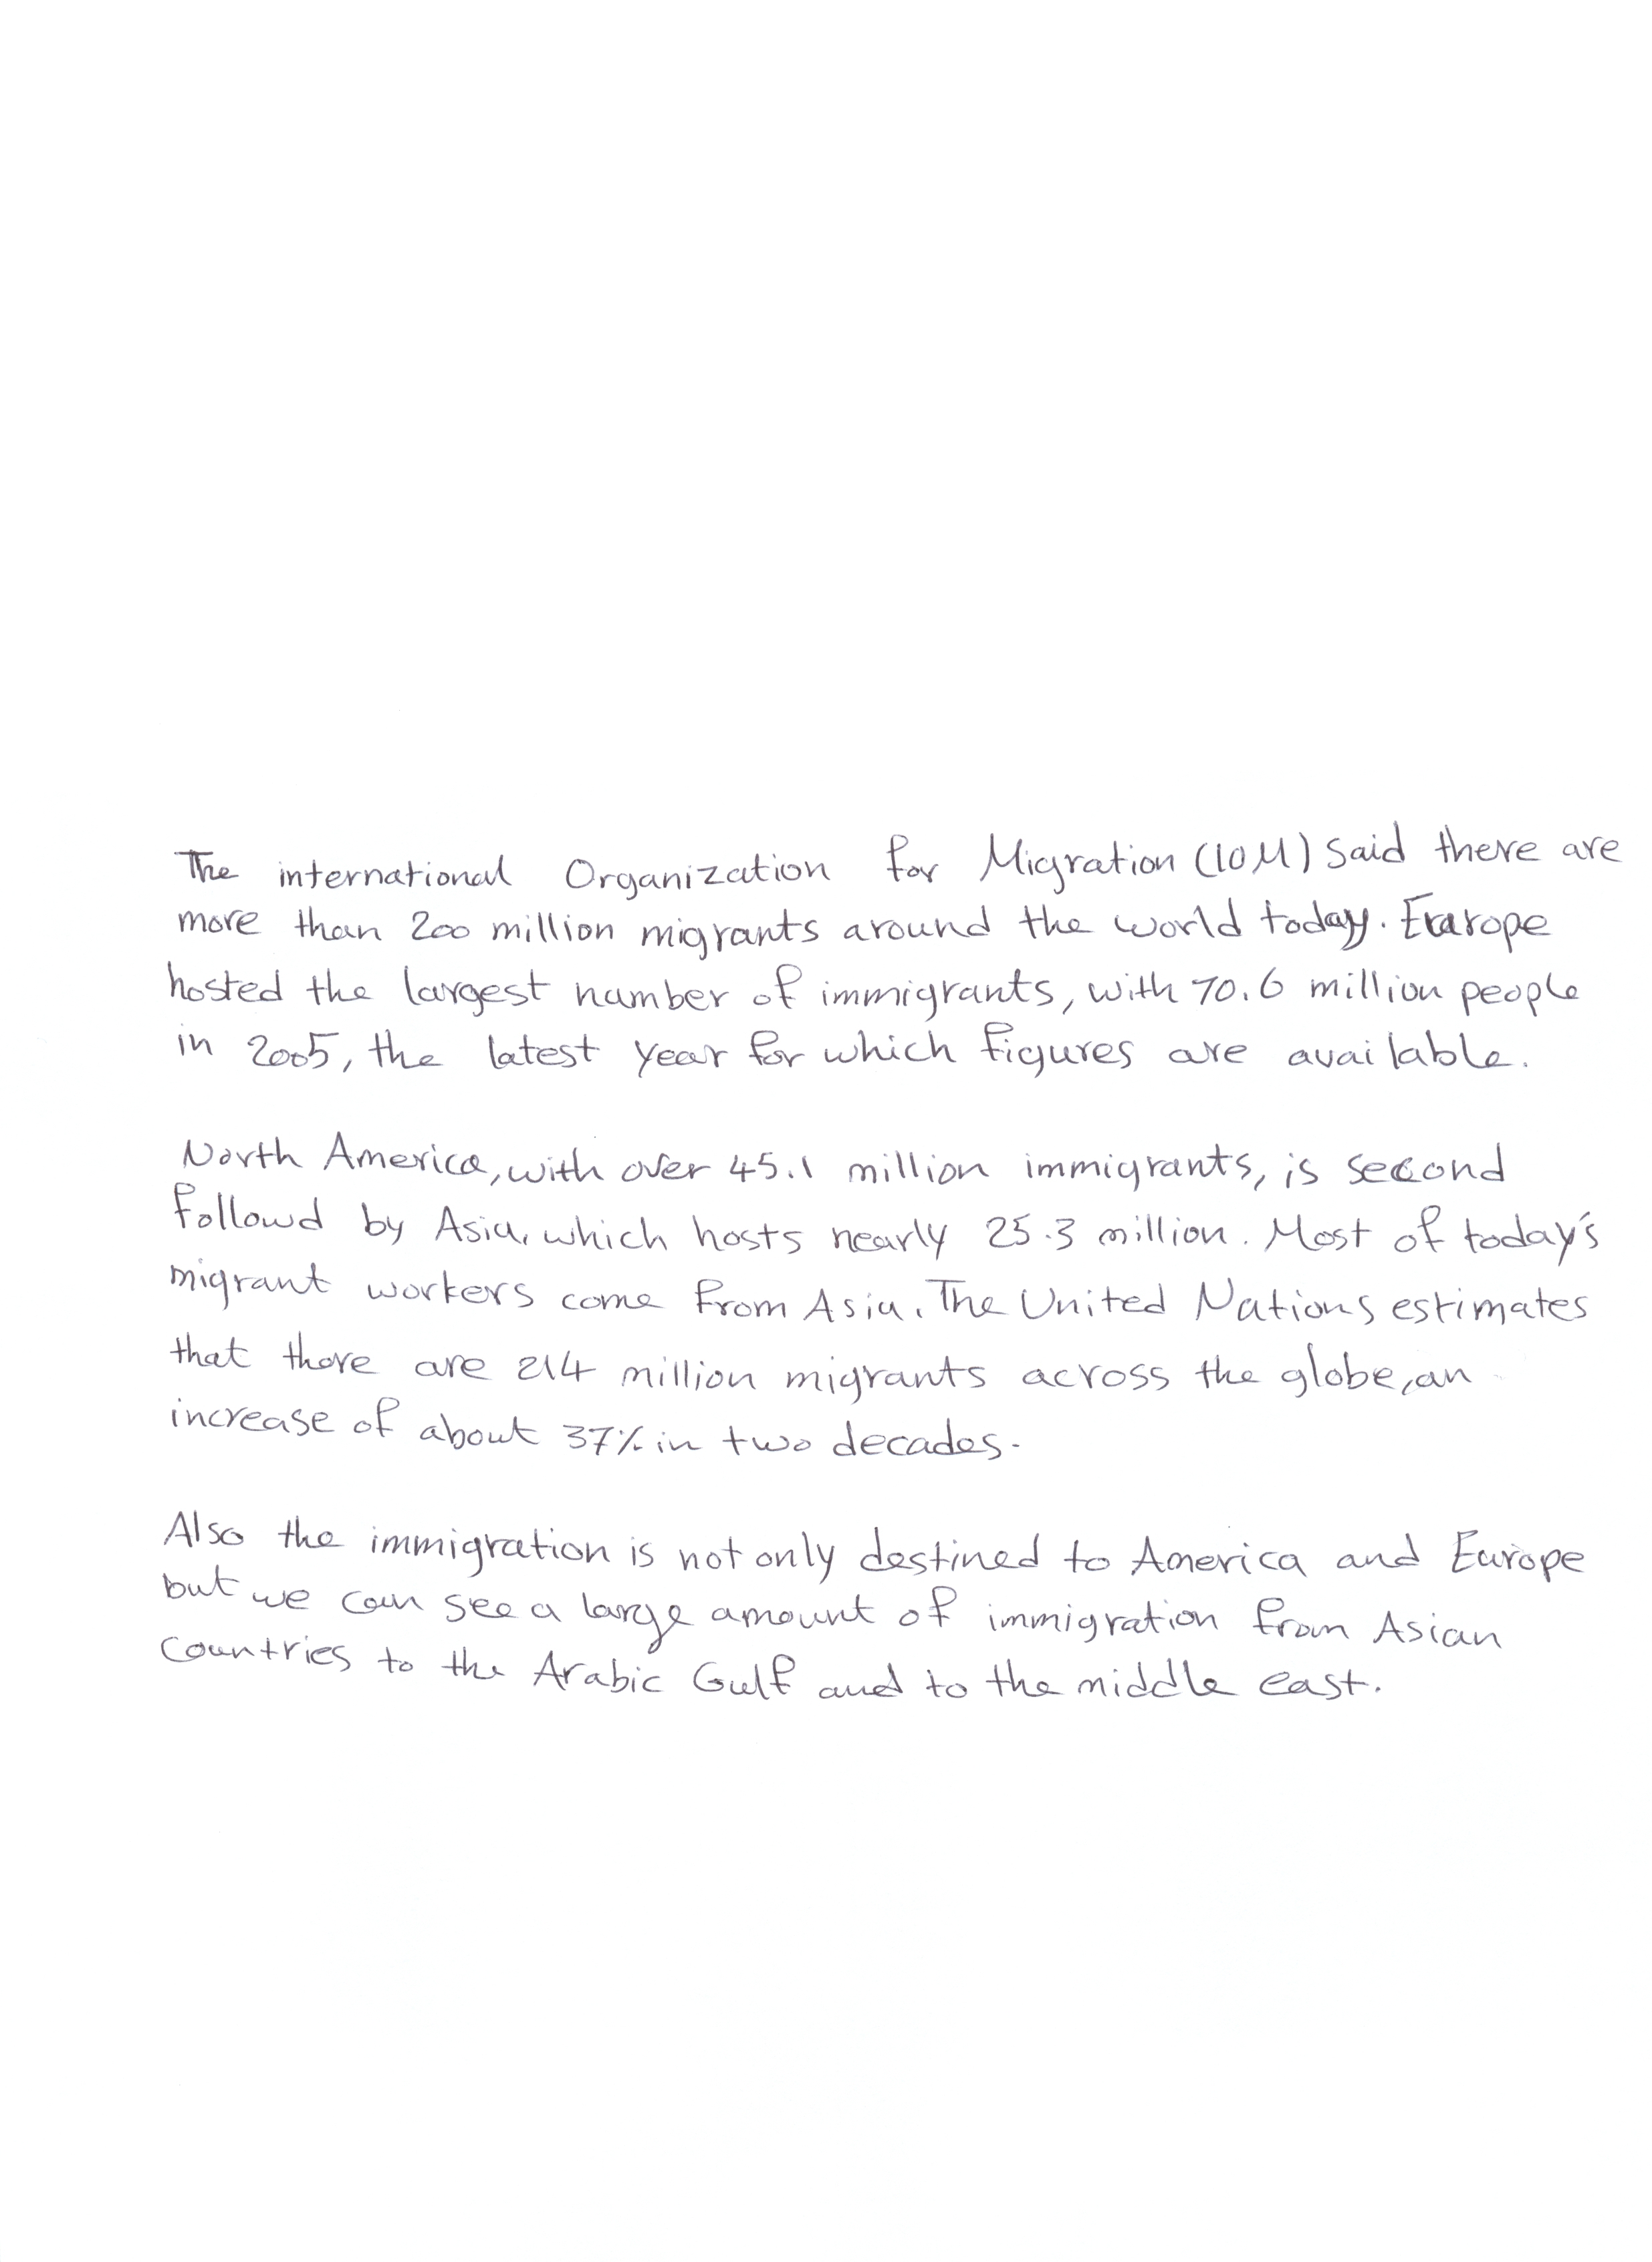 The international Organization for Migration (IOM) said there are
more than 200 million migrants around the world today. Europe
hosted the largest number of immigrants, with 70.6 million people
in 2005, the latest year for which figures are available.
North America, with over 45.1 million immigrants, is second
followd by Asia, which hosts nearly 25.3 million. Most of today's
migrant workers come from Asia. The United Nations estimates
that there are 214 million migrants across the globe, an
increase of about 37% in two decades.
Also the immigration is not only destined to America and Europe
but we can see a large amount of immigration from Asian
Countries to the Arabic Gulf and to the middle east.